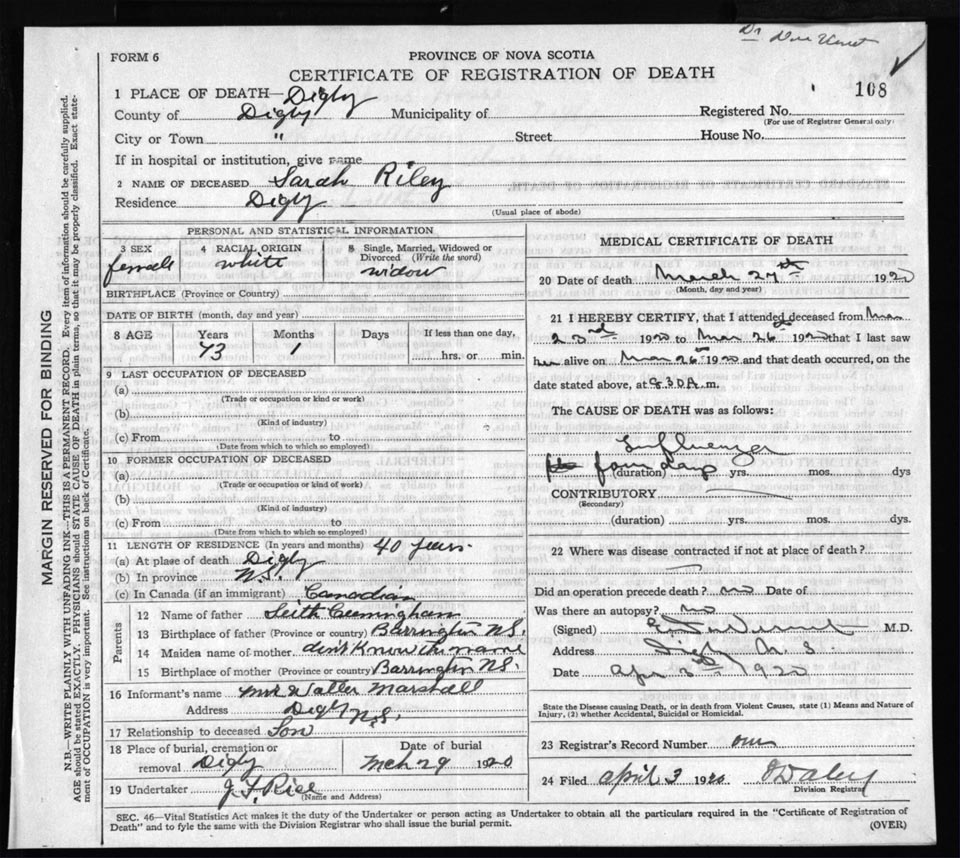 Dr
FORM 6
PROVINCE OF NOVA SCOTIA
CERTIFICATE OF REGISTRATION OF DEATH
168
1 PLACE OF DEATH—Digby
County of Digby Municipality of Registered No.
(For use of Registrar General only)
City or Town " Street House No.
If in hospital or institution, give name
2 NAME OF DECEASED Sarah Riley
Residence Digby
(Usual place of abode)
PERSONAL AND STATISTICAL INFORMATION
3 SEX 4 RACIAL ORIGIN 5 Single, Married, Widowed or
Divorced (Write the word)
female white widow
BIRTHPLACE (Province or Country)
DATE OF BIRTH (month, day and year)
8 AGE Years Months Days If less than one day,
73 1 hrs. or min.
9 LAST OCCUPATION OF DECEASED
(a)
(Trade or occupation or kind or work)
(b)
(Kind of industry)
(c) From to
(Date from which to which so employed)
10 FORMER OCCUPATION OF DECEASED
(a)
(Trade or occupation or kind of work)
(b)
(Kind of industry)
(c) From to
(Date from which to which so employed)
11 LENGTH OF RESIDENCE (In years and months) 40 years.
(a) At place of death Digby
(b) In province N.S.
(c) In Canada (if an immigrant) Canadian
Parents
12 Name of father Seith Cunningham
13 Birthplace of father (Province or country) Barrington N.S.
14 Maiden name of mother don't Know the name
15 Birthplace of mother (Province or country) Barrington N.S.
16 Informant's name Walter Marshall
Address Digby N.S.
17 Relationship to deceased Son
18 Place of burial, cremation or Date of burial
removal Digby Mch 29 1920
19 Undertaker J. F. Rice
(Name and Address)
MEDICAL CERTIFICATE OF DEATH
20 Date of death March 27th 1920
(Month, day and year)
21 I HEREBY CERTIFY, that I attended deceased from Mar
23rd 1920 to Mar 26th 1920 that I last saw
her alive on Mar 26th 1920 and that death occurred, on the
date stated above, at 8.30 m.
The CAUSE OF DEATH was as follows:
Influenza
few days (duration) yrs. mos. dys
CONTRIBUTORY
(Secondary)
(duration) yrs. mos. dys.
22 Where was disease contracted if not at place of death?
Did an operation precede death? no Date of
Was there an autopsy? no
(Signed) M.D.
Address Digby N. S.
Date Apr 1920
State the Disease causing Death, or in death from Violent Causes, state (1) Means and Nature of
Injury, (2) whether Accidental, Suicidal or Homicidal.
23 Registrar's Record Number
24 Filed April 3 1920
Division Registrar
SEC. 46—Vital Statistics Act makes it the duty of the Undertaker or person acting as Undertaker to obtain all the particulars required in the "Certificate of Registration of
Death" and to fyle the same with the Division Registrar who shall issue the burial permit. (OVER)
MARGIN RESERVED FOR BINDING
N.B.—WRITE PLAINLY WITH UNFADING INK—THIS IS A PERMANENT RECORD. Every item of information should be carefully supplied.
AGE should be stated EXACTLY. PHYSICIANS should STATE CAUSE OF DEATH in plain terms, so that it may be properly classified. Exact state-
ment of OCCUPATION is very important. See instructions on back of Certificate.